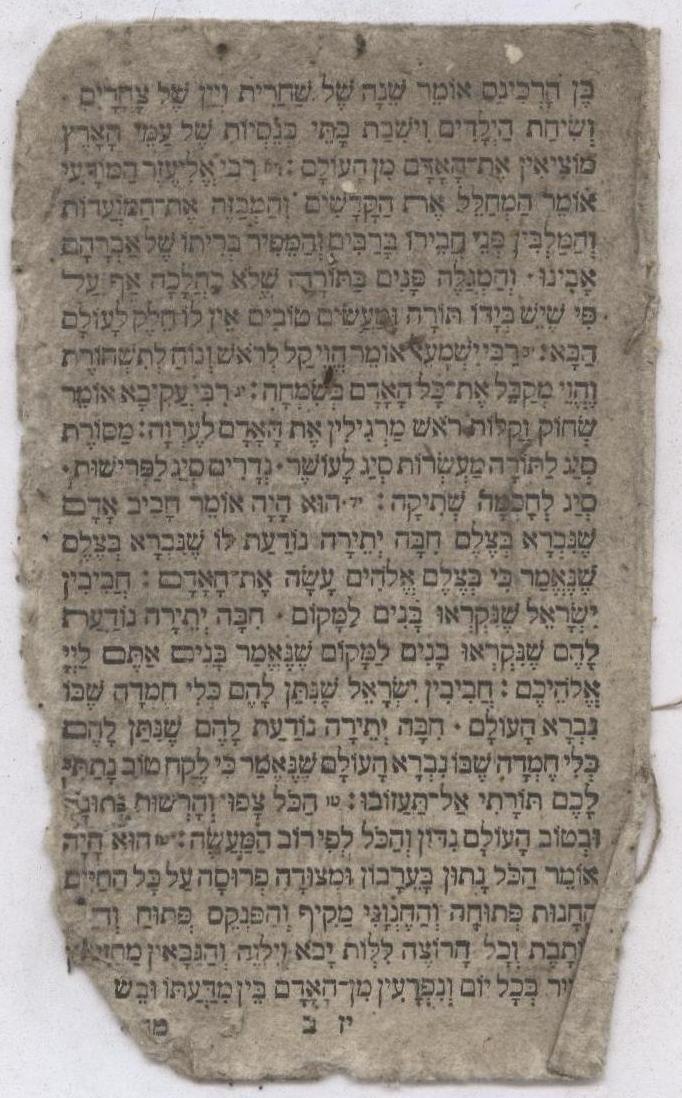 בֶּן הָרְכִּינַס אוֹמֵר שֵׁנָה שֶׁל שַׁחֲרִית וְיַיִן שֶׁל צָהֳרַיִם ·
וְשִׂיחַת הַיְלָדִים וִישִׁבַת בָּתֵּי כְּנֵסִיּוֹת שֶׁל עַמֵּי הָאָרֶץ
מוֹצִיאִין אֶת־הָאָדָם מִן הָעוֹלָם : רַבִּי אֶלִיעֶזֶר הַמּוֹדָעִי
אוֹמֵר הַמְחַלֵּל אֶת הַקֳּדָשִׁים וְהַמְבַזֶּה אֶת־הַמּוֹעֲדוֹת
וְהַמַּלְבִּין פְּנֵי חֲבֵירוֹ בָּרַבִּים וְהַמֵּפֵיר בְּרִיתוֹ שֶׁל אַבְרָהָם
אָבִינוּ · וְהַמְגַלֶּה פָנִים בַּתּוֹרָה שֶׁלֹּא כַהֲלָכָה אַף עַל
פִּי שֶׁיֵּשׁ בְּיָדוֹ תּוֹרָה וּמַעֲשִׂים טוֹבִים אֵין לוֹ חֵלֶק לָעוֹלָם
הַבָּא : רַבִּי יִשְׁמָעֵאל אוֹמֵר הֱוֵי קַל לְרֹאשׁ וְנוֹחַ לְתִשְׁחוֹרֶת
וֶהֱוֵי מְקַבֵּל אֶת־כָּל הָאָדָם בְּשִׂמְחָה : רַבִּי עֲקִיבָא אוֹמֵר
שְׂחוֹק וְקַלּוּת רֹאשׁ מַרְגִּילִין אֶת הָאָדָם לְעֶרְוָה : מַסּוֹרֶת
סְיַג לַתּוֹרָה מַעַשְׂרוֹת סְיַג לָעוֹשֶׁר · נְדָרִים סְיַג לַפְּרִישׁוּת ·
סְיַג לַחָכְמָה שְׁתִיקָה : יד · הוּא הָיָה אוֹמֵר חָבִיב אָדָם
שֶׁנִּבְרָא בְצֶלֶם חִבָּה יְתֵירָה נוֹדַעַת לוֹ שֶׁנִּבְרָא בְצֶלֶם
שֶׁנֶּאֱמַר כִּי בְּצֶלֶם אֱלֹהִים עָשָׂה אֶת־הָאָדָם : חֲבִיבִין
יִשְׂרָאֵל שֶׁנִּקְרְאוּ בָנִים לַמָּקוֹם · חִבָּה יְתֵירָה נוֹדַעַת
לָהֶם שֶׁנִּקְרְאוּ בָנִים לַמָּקוֹם שֶׁנֶּאֱמַר בָּנִים אַתֶּם לַיְיָ
אֱלֹהֵיכֶם : חֲבִיבִין יִשְׂרָאֵל שֶׁנִּתַּן לָהֶם כְּלִי חֶמְדָּה שֶׁבּוֹ
נִבְרָא הָעוֹלָם · חִבָּה יְתֵירָה נוֹדַעַת לָהֶם שֶׁנִּתַּן לָהֶם
כְּלִי חֶמְדָּה שֶׁבּוֹ נִבְרָא הָעוֹלָם שֶׁנֶּאֱמַר כִּי לֶקַח טוֹב נָתַתִּי
לָכֶם תּוֹרָתִי אַל־תַּעֲזוֹבוּ : טו הַכֹּל צָפוּי וְהָרְשׁוּת נְתוּנָה
וּבְטוֹב הָעוֹלָם נִדּוֹן וְהַכֹּל לְפִי רוֹב הַמַּעֲשֶׂה : הוּא הָיָה
אוֹמֵר הַכֹּל נָתוּן בָּעֵרָבוֹן וּמְצוּדָה פְרוּסָה עַל כָּל הַחַיִּים
הַחֲנוּת פְּתוּחָה וְהַחֶנְוָנִי מַקִּיף וְהַפִּנְקָס פָּתוּחַ
וְכָל הָרוֹצֶה לִלְוֹת יָבֹא וְיִלְוֶה וְהַגַּבָּאִין
בְּכָל יוֹם וְנִפְרָעִין מִן־הָאָדָם בֵּין מִדַּעְתּוֹ
יז ב